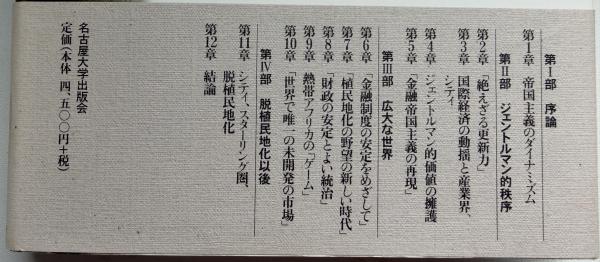 第Ⅰ部 序論
第1章 帝国主義のダイナミズム
第Ⅱ部 ジェントルマン的秩序
第2章 「絶えざる更新力」
第3章 国際経済の動揺と産業界、
シティ
第4章 ジェントルマン的価値の擁護
第5章 「金融帝国主義の再現」
第Ⅲ部 広大な世界
第6章 「金融制度の安定をめざして」
第7章 「植民地化の野望の新しい時代」
第8章 「財政の安定とよい統治」
第9章 熱帯アフリカの「ゲーム」
第10章 「世界で唯一の未開発の市場」
第Ⅳ部 脱植民地化以後
第11章 シティ、スターリング圏、
脱植民地化
第12章 結論
名古屋大学出版会
定価(本体 四、五〇〇円+税)